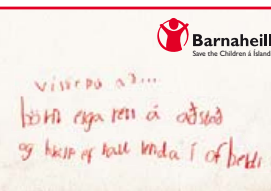 Barnaheill
Save the Children á Ísland
vissir þú að...
börn eiga rétt á aðstoð
og hjálp ef þau lenda í ofbeldi